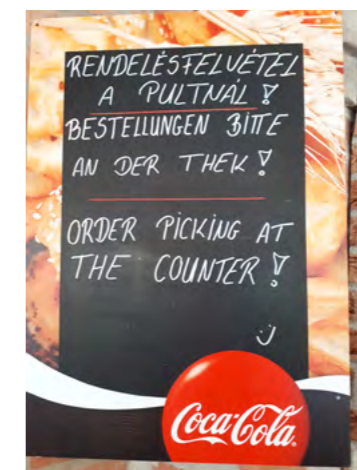 RENDELÉSFELVÉTEL
A PULTNÁL !
BESTELLUNGEN BITTE
AN DER THEK !
ORDER PICKING AT
THE COUNTER !
:)
Coca-Cola